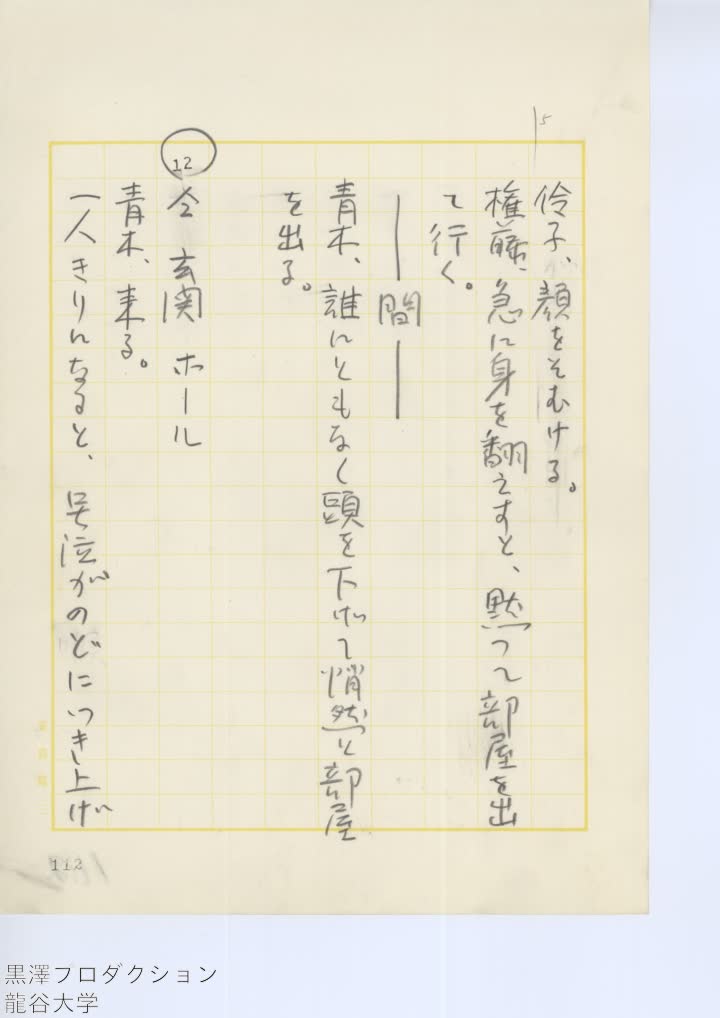 5
伶子、顔をそむける。
権藤、急に身を翻えすと、黙つて部屋を出
て行く。
——間——
青木、誰にともなく頭を下げて悄然と部屋
を出る。
12 仝 玄関 ホール
青木、来る。
一人きりになると、号泣がのどにつき上げ
112
黒澤プロダクション
龍谷大学